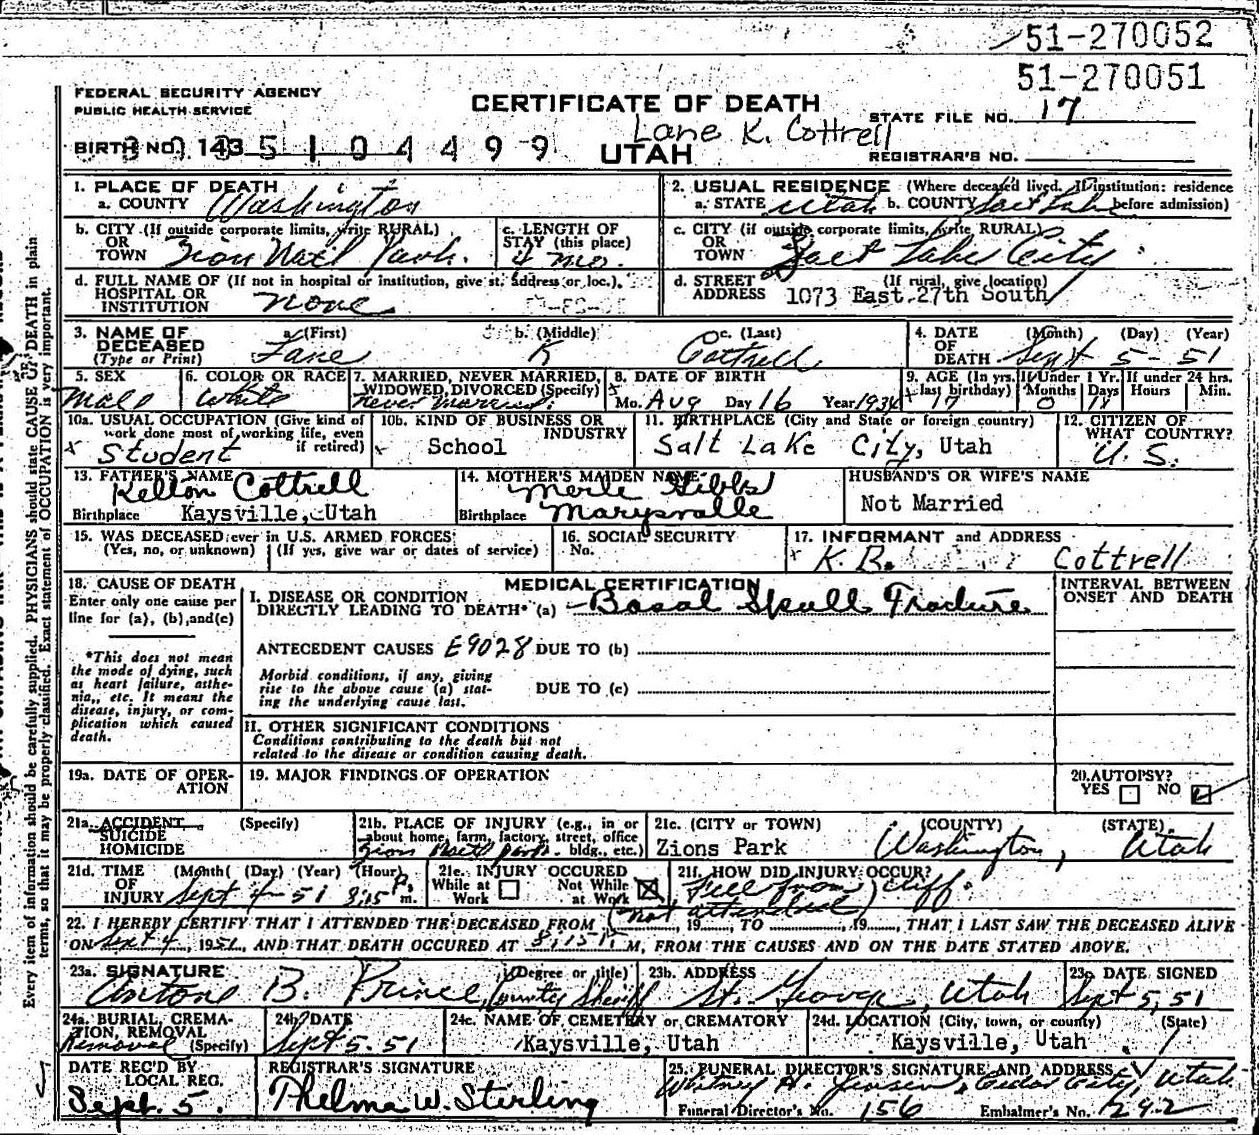 51-270052
51-270051
FEDERAL SECURITY AGENCY
PUBLIC HEALTH SERVICE
CERTIFICATE OF DEATH
STATE FILE NO. 17
Lane K. Cottrell
BIRTH NO. 143 5104499
UTAH
REGISTRAR'S NO.
1. PLACE OF DEATH
a. COUNTY Washington
2. USUAL RESIDENCE (Where deceased lived. If institution: residence before admission)
a. STATE Utah b. COUNTY Salt Lake
b. CITY (If outside corporate limits, write RURAL) OR TOWN Zion Nat'l Park.
c. LENGTH OF STAY (this place) 4 mo.
c. CITY (if outside corporate limits, write RURAL) OR TOWN Salt Lake City
d. FULL NAME OF (If not in hospital or institution, give st. address or loc.) HOSPITAL OR INSTITUTION none
d. STREET ADDRESS (If rural, give location) 1073 East 27th South
3. NAME OF DECEASED (Type or Print)
a. (First) Lane b. (Middle) K c. (Last) Cottrell
4. DATE OF DEATH (Month) (Day) (Year) Sept 5-51
5. SEX Male
6. COLOR OR RACE White
7. MARRIED, NEVER MARRIED, WIDOWED, DIVORCED (Specify) Never Married
8. DATE OF BIRTH Mo. Aug Day 16 Year 1934
9. AGE (In yrs. last birthday) 17 If Under 1 Yr. Months 0 Days If under 24 hrs. Hours Min.
10a. USUAL OCCUPATION (Give kind of work done most of working life, even if retired) Student
10b. KIND OF BUSINESS OR INDUSTRY School
11. BIRTHPLACE (City and State or foreign country) Salt Lake City, Utah
12. CITIZEN OF WHAT COUNTRY? U.S.
13. FATHER'S NAME Kellon Cottrell
Birthplace Kaysville, Utah
14. MOTHER'S MAIDEN NAME Merle Gibbs
Birthplace Marysvalle
HUSBAND'S OR WIFE'S NAME
Not Married
15. WAS DECEASED ever in U.S. ARMED FORCES?
(Yes, no, or unknown) (If yes, give war or dates of service)
16. SOCIAL SECURITY No.
17. INFORMANT and ADDRESS
K. B. Cottrell
18. CAUSE OF DEATH
Enter only one cause per line for (a), (b), and (c)
*This does not mean the mode of dying, such as heart failure, asthenia, etc. It means the disease, injury, or complication which caused death.
MEDICAL CERTIFICATION
INTERVAL BETWEEN ONSET AND DEATH
I. DISEASE OR CONDITION DIRECTLY LEADING TO DEATH* (a) Basal Skull Fracture
ANTECEDENT CAUSES E9028 DUE TO (b)
Morbid conditions, if any, giving rise to the above cause (a) stating the underlying cause last.
DUE TO (c)
II. OTHER SIGNIFICANT CONDITIONS
Conditions contributing to the death but not related to the disease or condition causing death.
19a. DATE OF OPERATION
19. MAJOR FINDINGS OF OPERATION
20. AUTOPSY?
YES NO
21a. ACCIDENT SUICIDE HOMICIDE (Specify)
21b. PLACE OF INJURY (e.g., in or about home, farm, factory, street, office bldg., etc.) Zion Nat'l Park
21c. (CITY or TOWN) (COUNTY) (STATE)
Zions Park Washington, Utah
21d. TIME OF INJURY (Month) (Day) (Year) (Hour) Sept 4 51 8:15 P. m.
21e. INJURY OCCURED While at Work Not While at Work
21f. HOW DID INJURY OCCUR? Fell from cliff.
(not attended)
22. I HEREBY CERTIFY THAT I ATTENDED THE DECEASED FROM ..., 19..., TO ..., 19..., THAT I LAST SAW THE DECEASED ALIVE
ON Sept 4, 1951, AND THAT DEATH OCCURED AT 8:15 P. M, FROM THE CAUSES AND ON THE DATE STATED ABOVE.
23a. SIGNATURE (Degree or title) Antone B. Prince, County Sheriff
23b. ADDRESS St. George, Utah
23c. DATE SIGNED Sept 5, 51
24a. BURIAL, CREMATION, REMOVAL (Specify) Removal
24b. DATE Sept 5. 51
24c. NAME OF CEMETERY or CREMATORY Kaysville, Utah
24d. LOCATION (City, town, or county) (State) Kaysville, Utah
DATE REC'D BY LOCAL REG. Sept. 5.
REGISTRAR'S SIGNATURE Thelma W. Stirling
25. FUNERAL DIRECTOR'S SIGNATURE AND ADDRESS
Whitney H. Jensen, Cedar City, Utah
Funeral Director's No. 156 Embalmer's No. 242
Every item of information should be carefully supplied. PHYSICIANS should state CAUSE OF DEATH in plain
terms, so that it may be properly classified. Exact statement of OCCUPATION is very important.